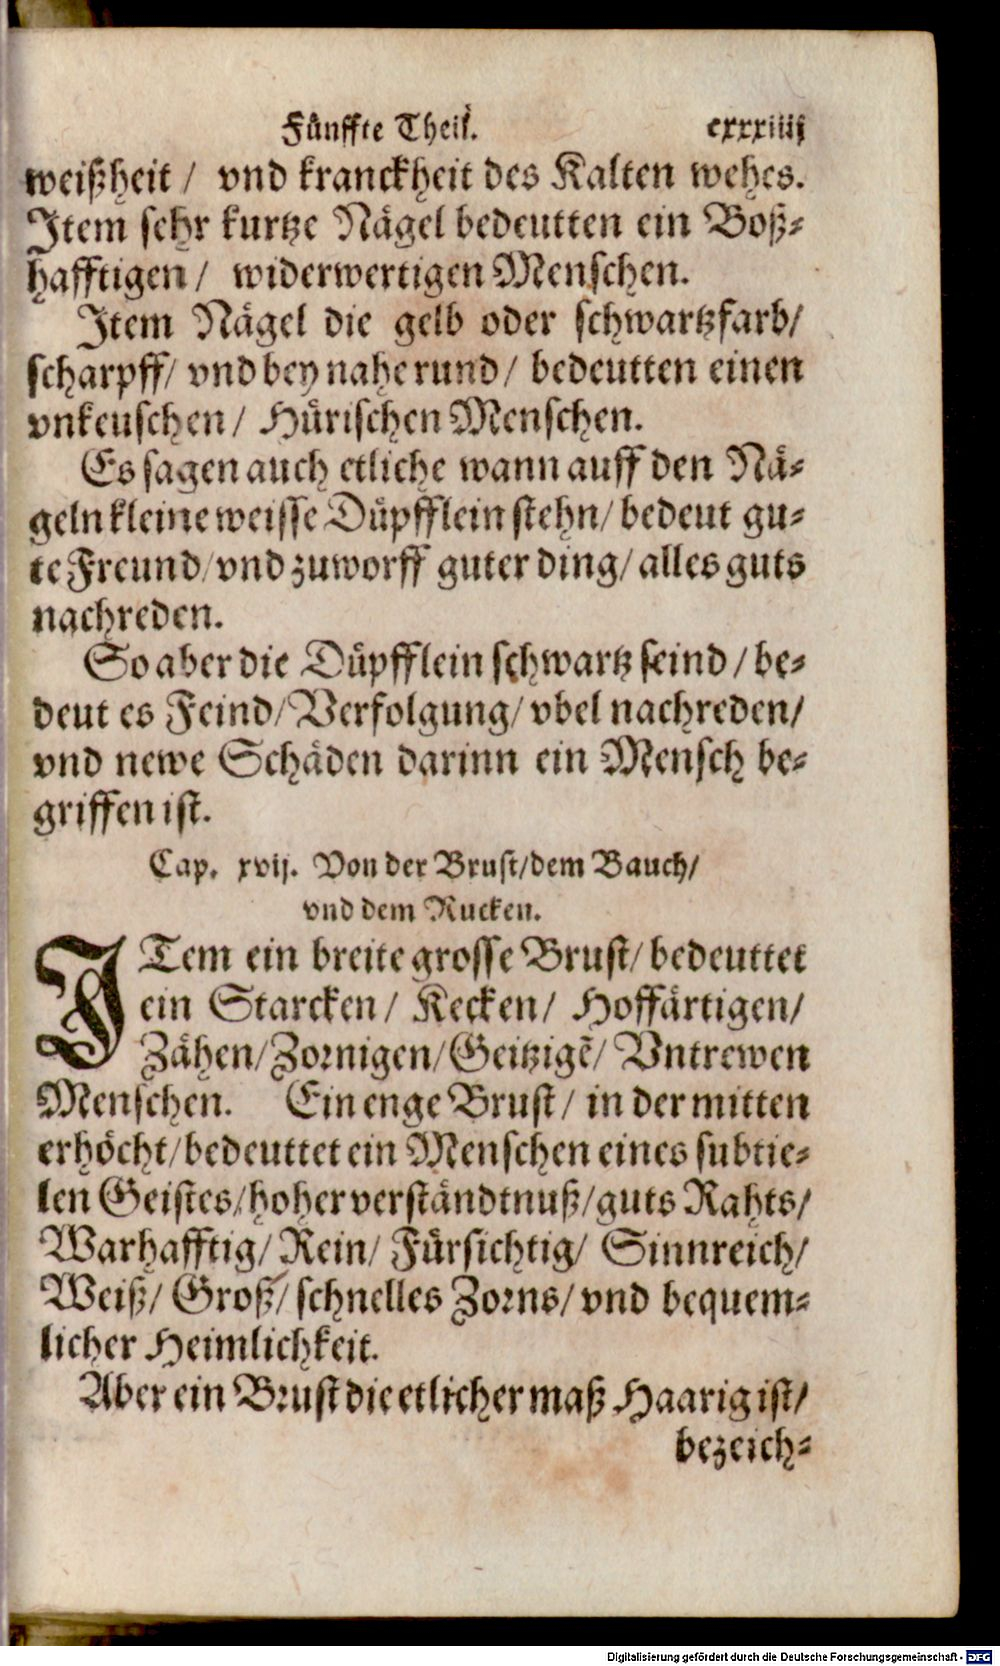 Fünffte Theil. cxxxiiij
weißheit / vnd kranckheit des Kalten wehes.
Item sehr kurtze Nägel bedeutten ein Boß-
hafftigen / widerwertigen Menschen.
Item Nägel die gelb oder schwartzfarb/
scharpff/ vnd bey nahe rund / bedeutten einen
vnkeuschen / Hürischen Menschen.
Es sagen auch etliche wann auff den Nä-
geln kleine weisse Düpfflein stehn/ bedeut gu-
te Freund/ vnd zuworff guter ding/ alles guts
nachreden.
So aber die Düpfflein schwartz seind / be-
deut es Feind/ Verfolgung/ vbel nachreden/
vnd newe Schäden darinn ein Mensch be-
griffen ist.
Cap. xvij. Von der Brust/dem Bauch/
vnd dem Rucken.
ITem ein breite grosse Brust/ bedeuttet
ein Starcken / Kecken / Hoffärtigen/
Zähen/ Zornigen/ Geitzigẽ/ Vntrewen
Menschen. Ein enge Brust / in der mitten
erhöcht/ bedeuttet ein Menschen eines subtie-
len Geistes/ hoher verständtnuß/ guts Rahts/
Warhafftig/ Rein/ Fürsichtig/ Sinnreich/
Weiß/ Groß/ schnelles Zorns/ vnd bequem-
licher Heimlichkeit.
Aber ein Brust die etlicher maß Haarig ist/
bezeich-
Digitalisierung gefördert durch die Deutsche Forschungsgemeinschaft - DFG